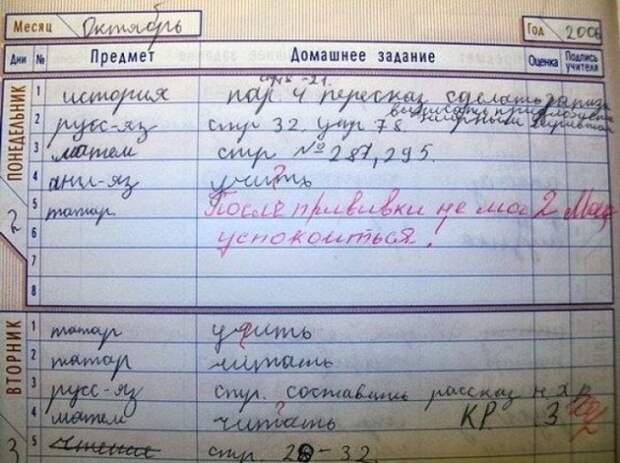 Месяц Октябрь Год 2006
Дни № Предмет Домашнее задание Оценка Подпись учителя
ПОНЕДЕЛЬНИК 2
стр -21.
1 история пар. 4 пересказ сделать
2 русс-яз стр 32. упр 78
3 матем стр №287,295.
4 анг-яз учить
5 татар После прививки не мог 2
6 успокоиться!
7
8
ВТОРНИК 3
1 татар учить
2 татар читать
3 русс-яз стр. составить рассказ
4 матем читать КР. 3
5 чтение стр. 28-32